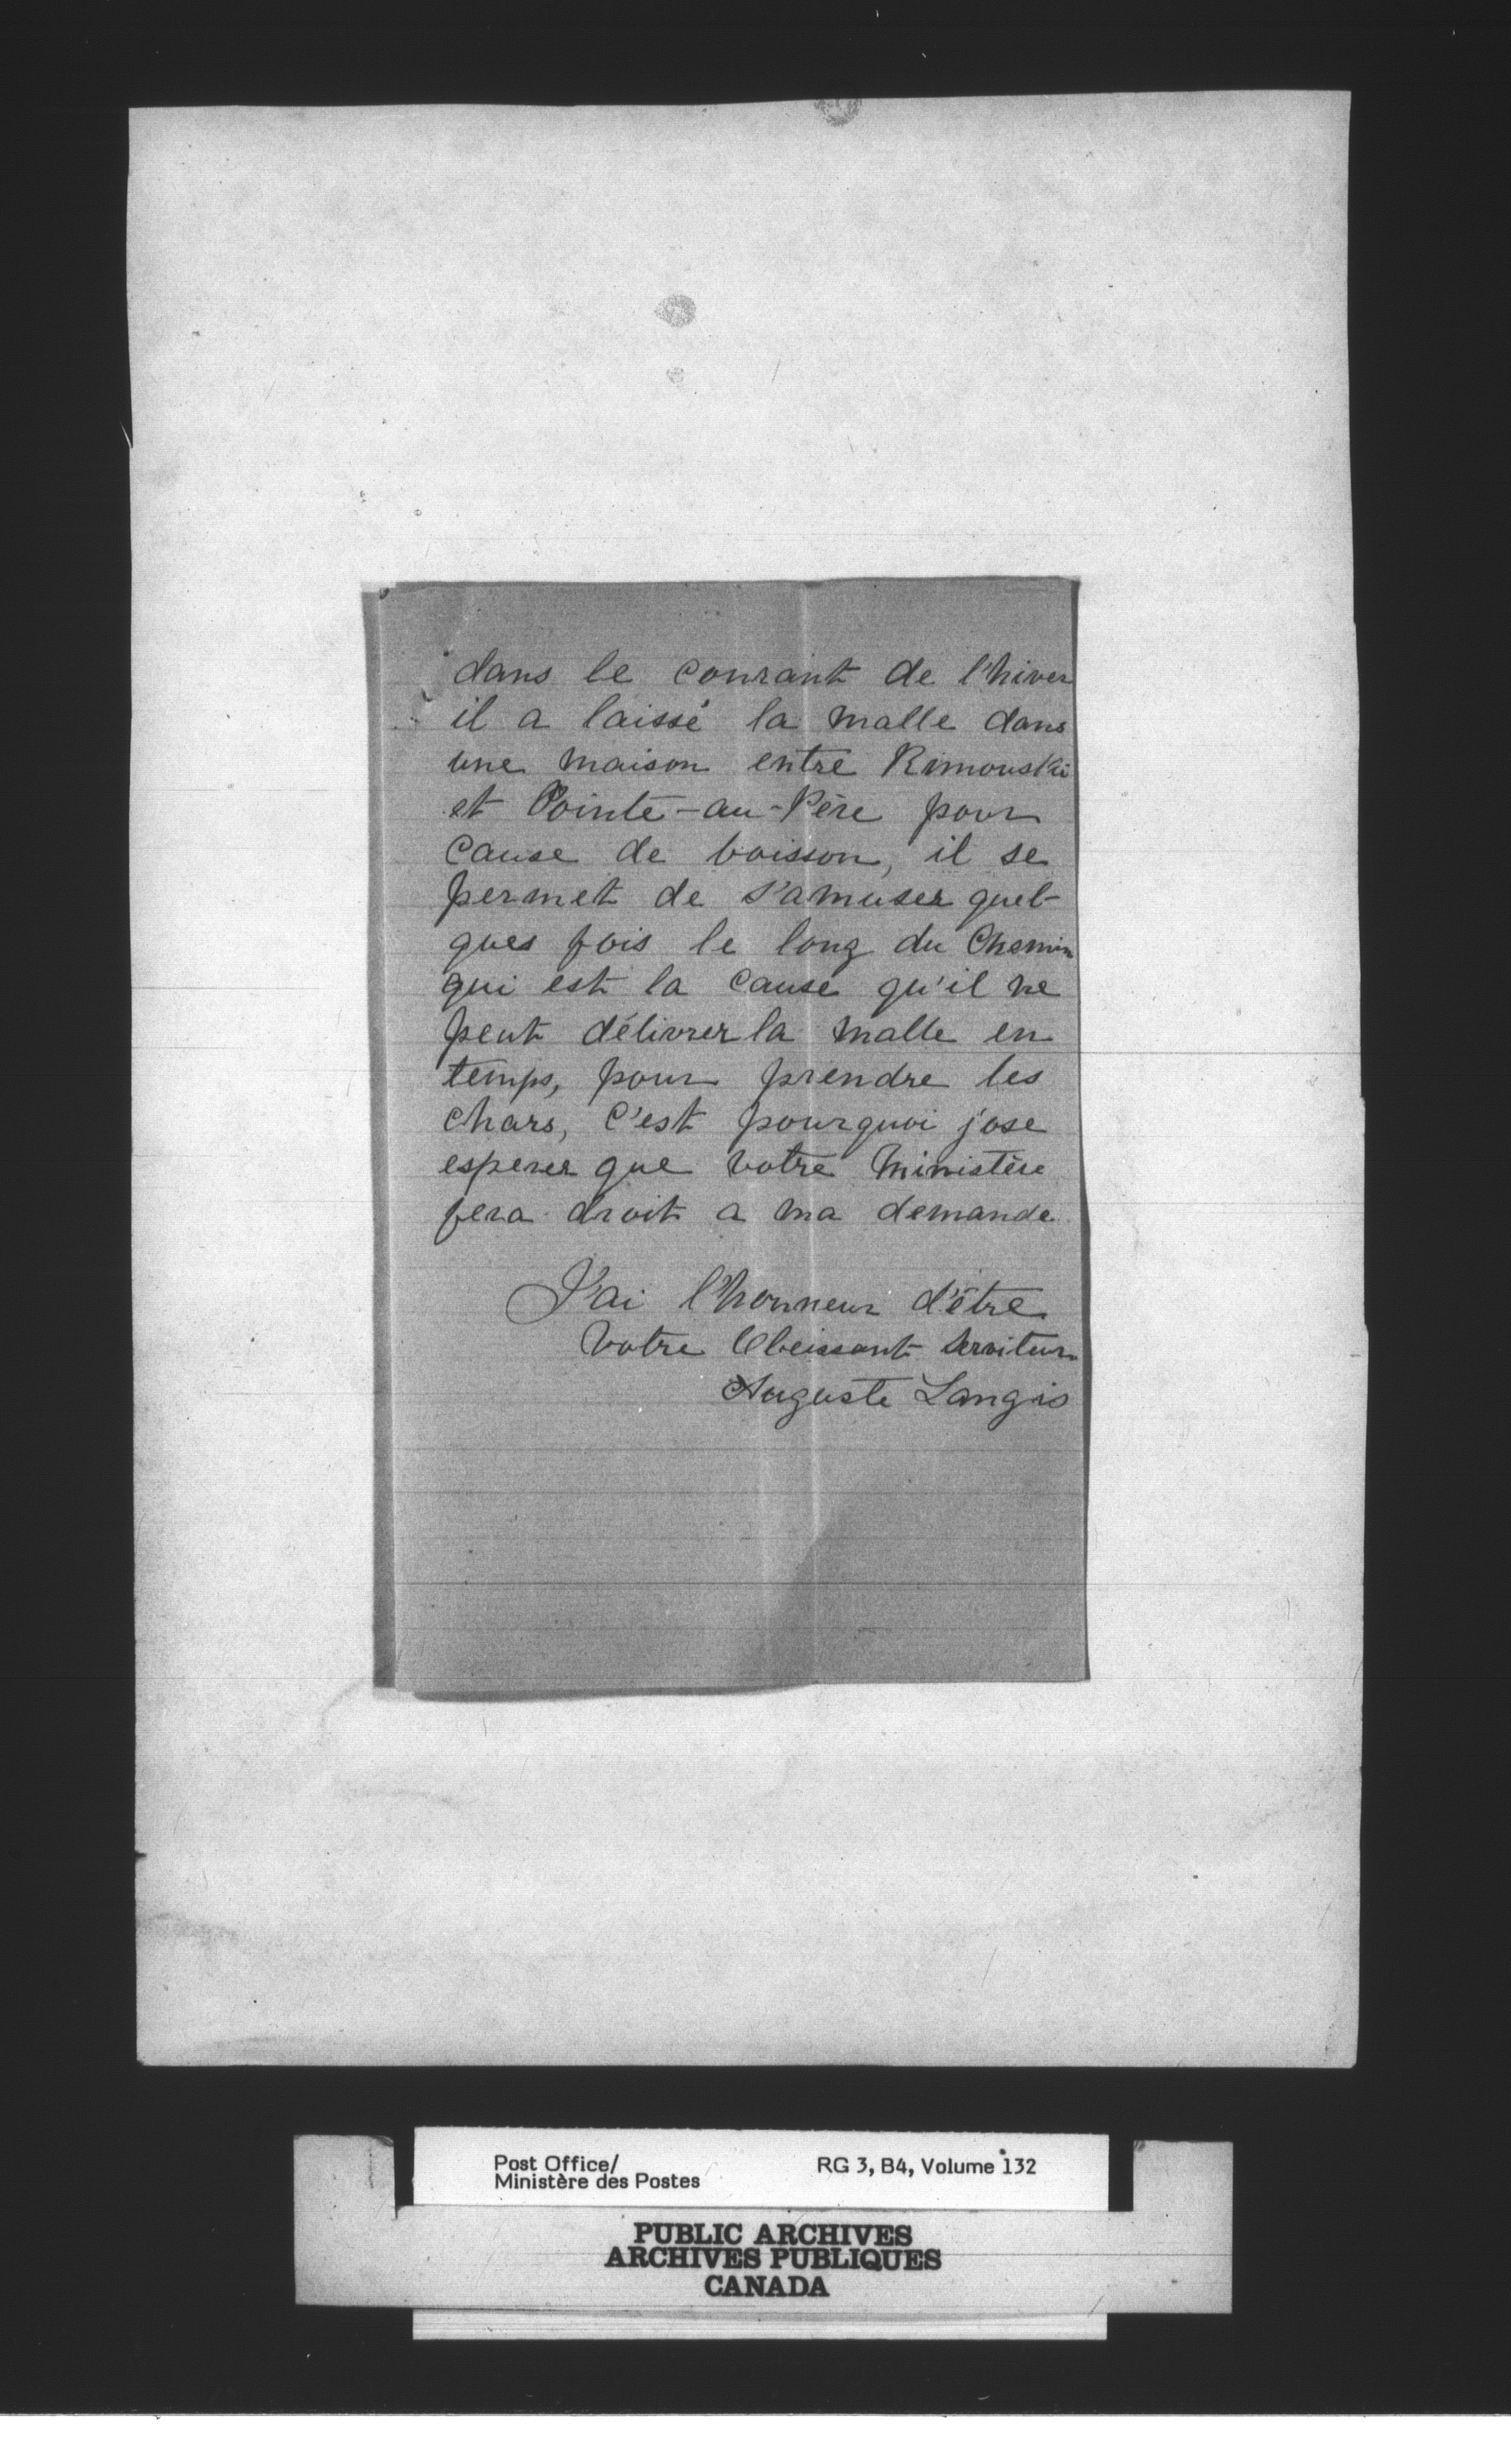 dans le courant de l'hiver
il a laissé la malle dans
une maison entre Rimouski
et Pointe-au-Père pour
cause de boisson, il se
permet de s'amuser quel-
ques fois le long du Chemin
qui est la cause qu'il ne
peut délivrer la malle en
temps, pour prendre les
chars, C'est pourquoi j'ose
esperer que votre Ministère
fera droit a ma demande.
J'ai l'honneur d'être
Votre Obeissant Serviteur
Auguste Langis
Post Office/
Ministère des Postes
RG 3, B4, Volume 132
PUBLIC ARCHIVES
ARCHIVES PUBLIQUES
CANADA